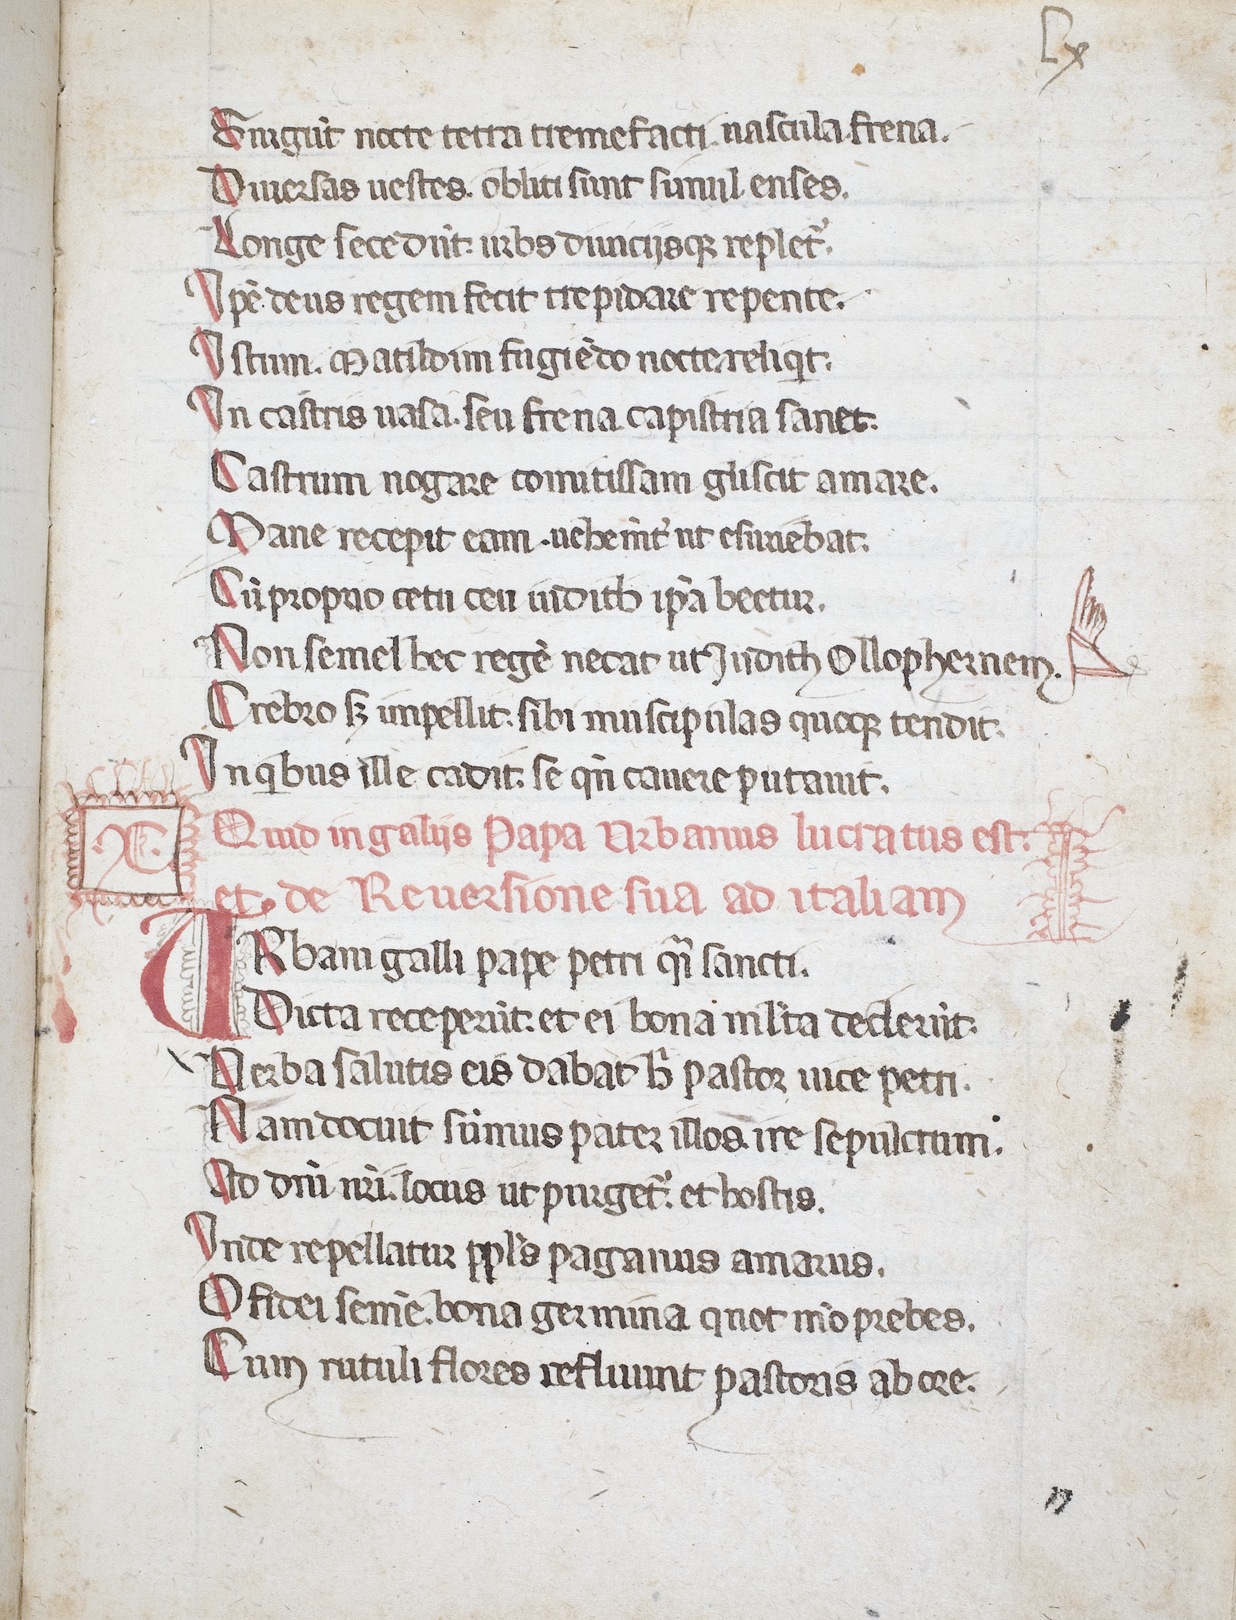 Lx
Surgūt nocte tetra tremefacti. uascula. frena.
Diuersas uestes. obliti sunt simul enses.
Longe secedūt. urbs diuicijsqꝫ replet᷒.
Ip̄e deus regem fecit trepidare repente.
Istum. Matildim fugiēdo nocte reliqͥt.
In castris uasa. seu frena capistria sanet.
Castrum nogare comitissam gliscit amare.
Mane recepit eam. uehem̄t᷒ ut esuriebat.
Cū proprio cetu ceu iudith ip̄a hectur.
Non semel hec regē necat ut Judith Ollophernem.
Crebro sꝫ impellit. sibi muscipulas quoqꝫ tendit.
In qͥbus ille cadit. se qn̄ cauere putauit.
C
Quid in galijs Papa Urbanus lucratus est.
et. de Reuersione sua ad italiam
URbani galli pape petri qͣi sancti.
Dicta receperūt. et ei bona ml̄ta dederūt.
Verba salutis eis dabat h̄ pastor uice petri.
Nam docuit sūmus pater illos. ire sepulcrum.
Ad dn̄i nr̄i. locus ut purget᷒. et hostis.
Inde repellatur ppl̄s paganus amarus.
O fidei semē. bona germina quot mō prebes.
Cum rutuli flores refluunt pastoris ab ore.